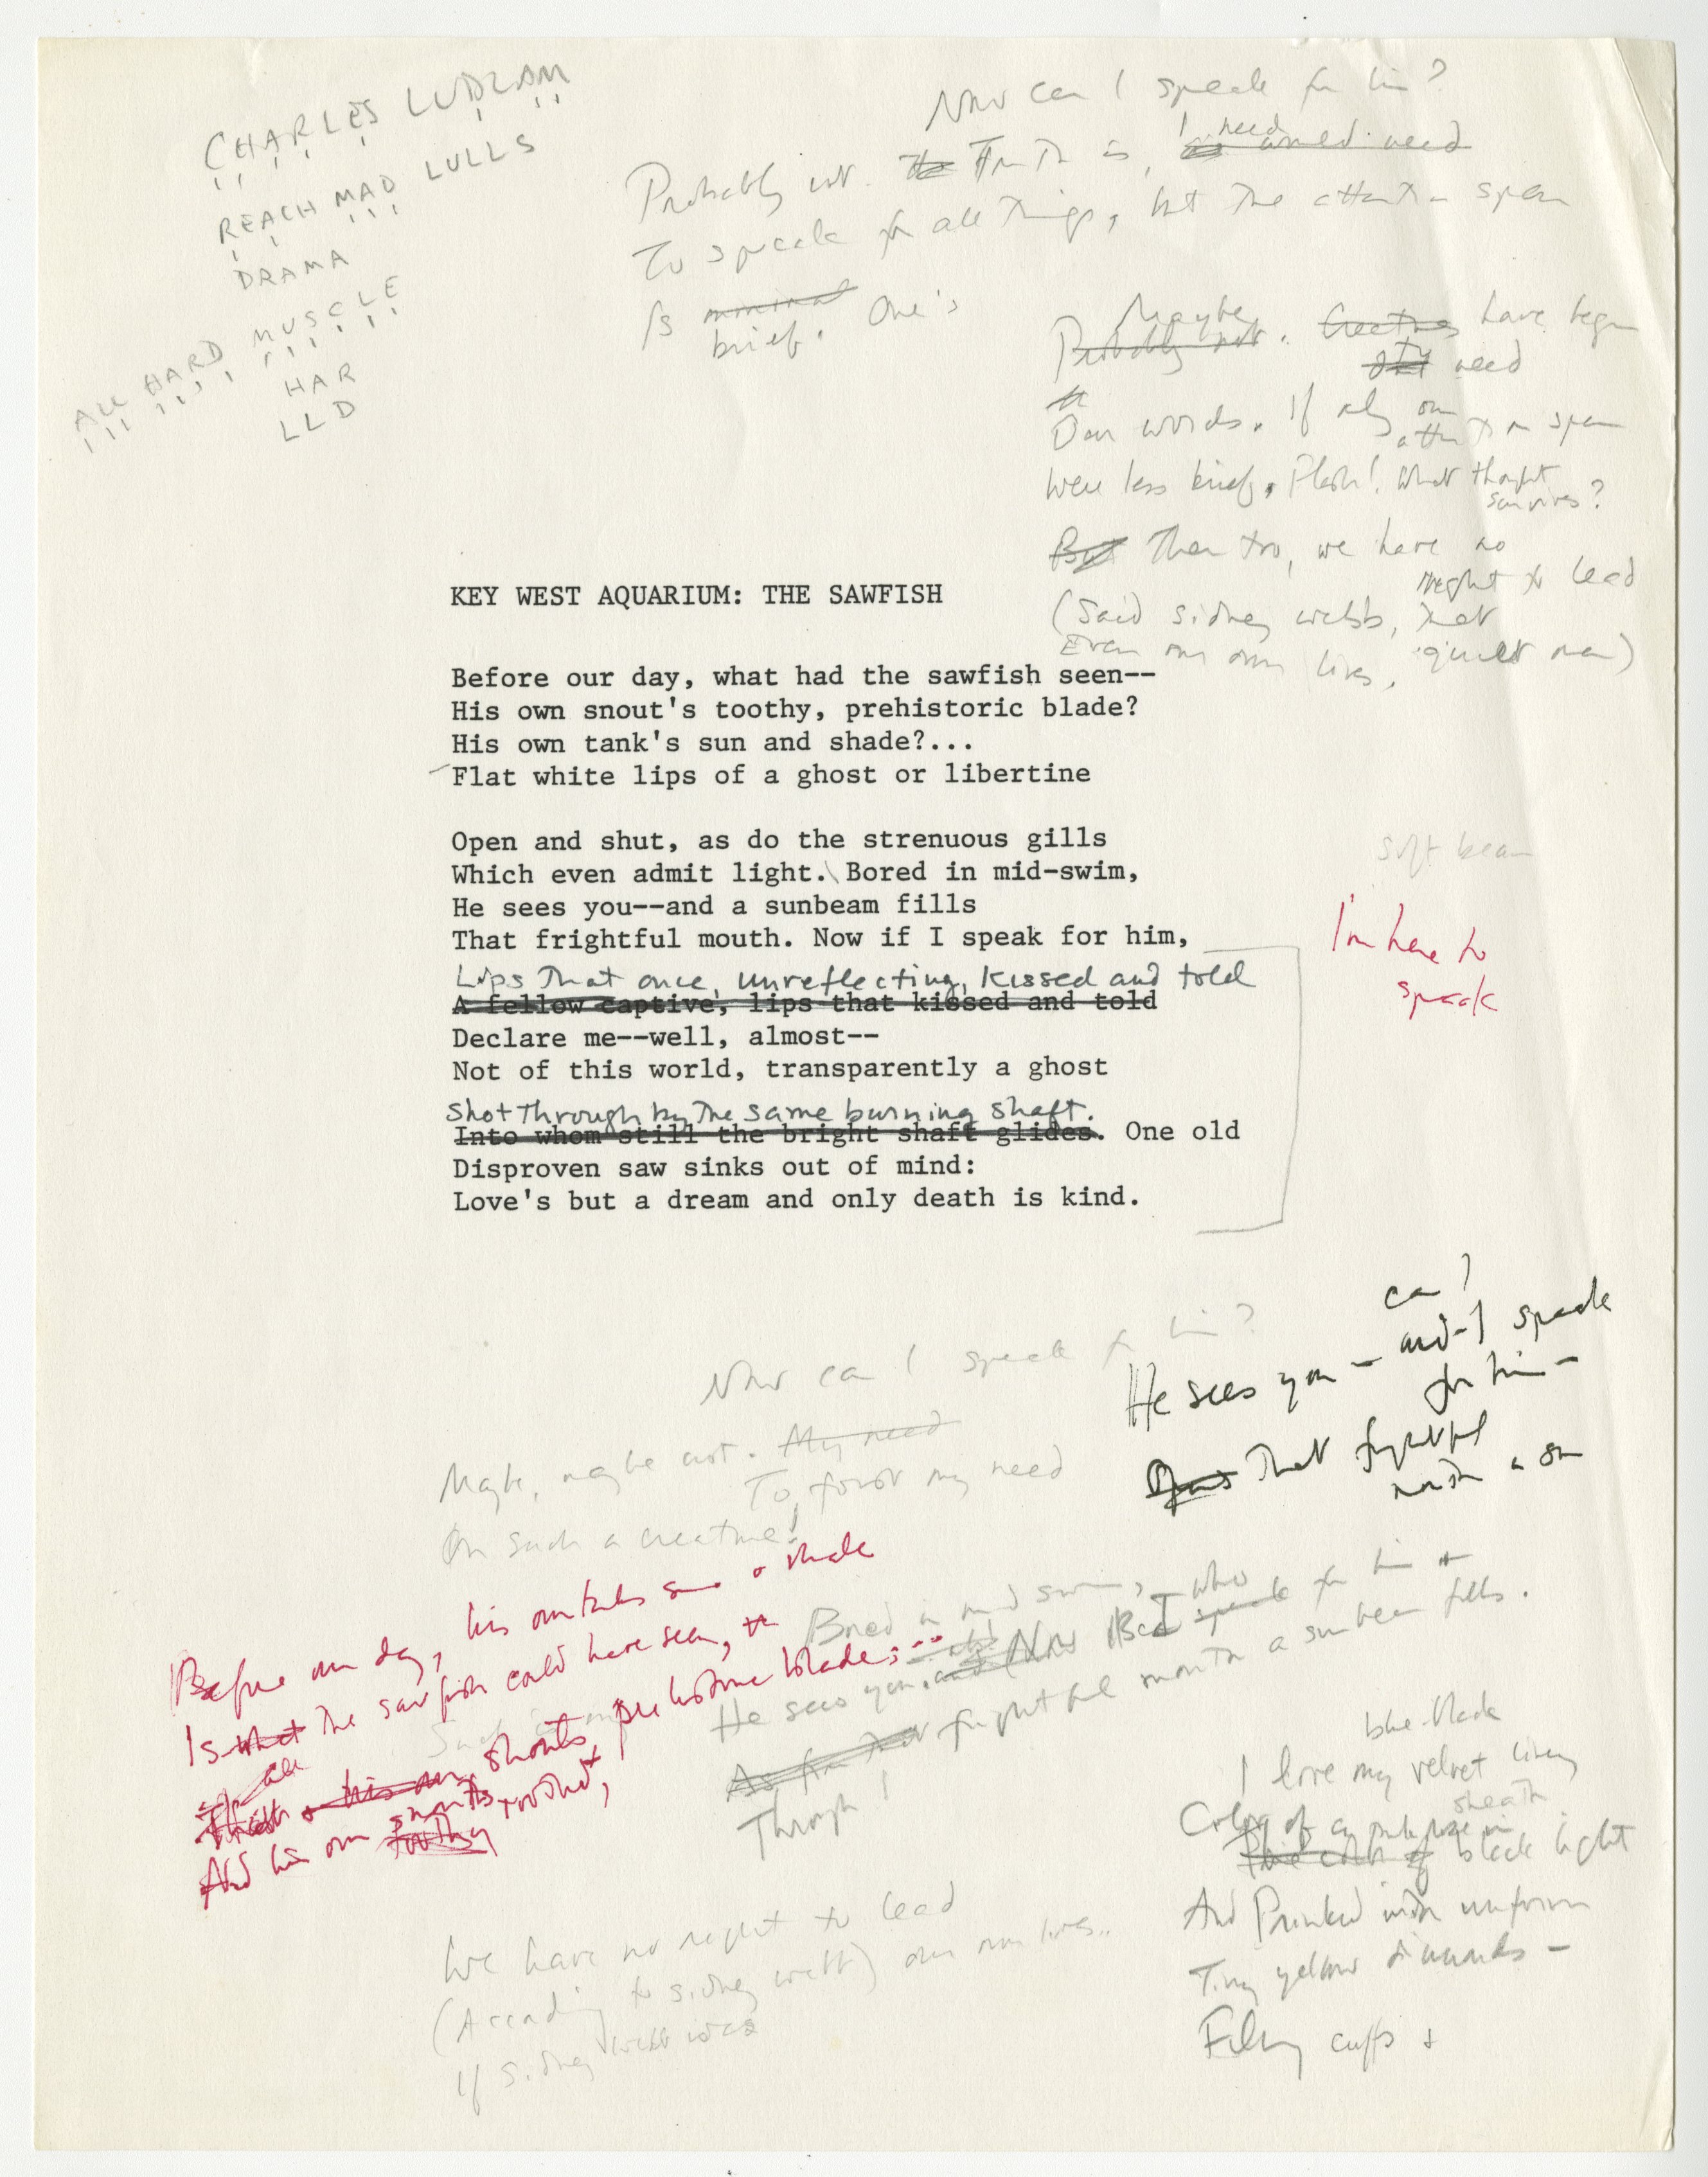 CHARLES LUDLAM
REACH MAD LULLS
DRAMA
ALL HARD MUSCLE
HAR
LLD
Now can I speak for him?
Probably not. The Truth is, I need
To speak for all things, but the attention span
Is minimal
brief. One's
Maybe
Probably not. Creatures have begun
need
Our words. If only our attention span
Were less brief. Flash! What thought
survives?
But Then too, we have no
right to lead
(Said Sidney Webb, that
Even our own lives, quiet man)
KEY WEST AQUARIUM: THE SAWFISH
Before our day, what had the sawfish seen--
His own snout's toothy, prehistoric blade?
His own tank's sun and shade?...
Flat white lips of a ghost or libertine
Open and shut, as do the strenuous gills
Which even admit light. Bored in mid-swim,
He sees you--and a sunbeam fills
That frightful mouth. Now if I speak for him,
Lips That once, unreflecting, kissed and told
A fellow captive, lips that kissed and told
Declare me--well, almost--
Not of this world, transparently a ghost
Shot through by The same burning shaft.
Into whom still the bright shaft glides. One old
Disproven saw sinks out of mind:
Love's but a dream and only death is kind.
soft beam
I'm here to
speak
can?
He sees you -- and I speak
for him --
That frightful
mouth a sun
Now can I speak for him?
Maybe, maybe not. My need
To foist my need
On such a creature!
Before our day, his own tank's sun & shade
Is what The sawfish could have seen,
all
And his own snout's toothy prehistoric blade
Bored in mid swim,
He sees you. and Now
As for That frightful mouth a sunbeam fills.
Through!
blue-black
I love my velvet livery
sheath
Color of a purple rose in
black light
And Printed with uniform
Tiny yellow diamonds --
Filmy cuffs +
We have no right to lead
(According to Sidney Webb) our own lives..
If Sidney Webb was